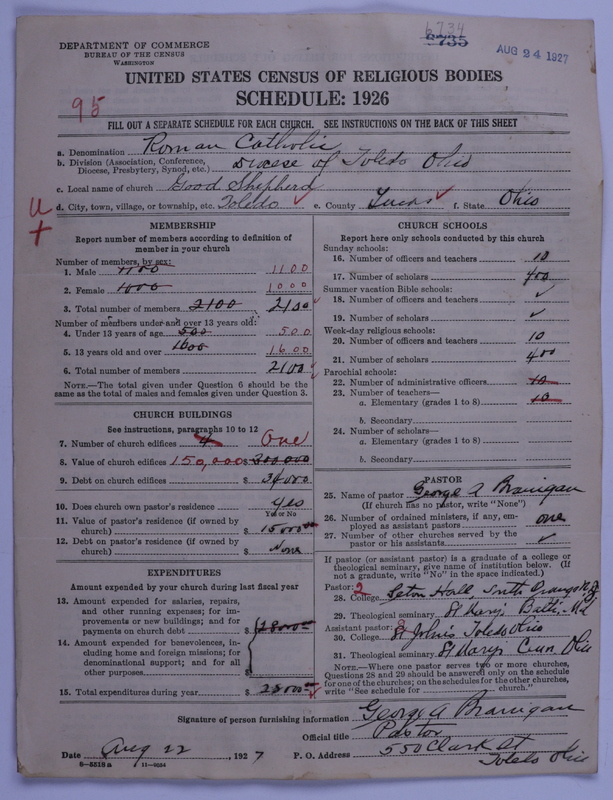 6734
6735
AUG 24 1927
DEPARTMENT OF COMMERCE
BUREAU OF THE CENSUS
WASHINGTON
UNITED STATES CENSUS OF RELIGIOUS BODIES
SCHEDULE: 1926
95
FILL OUT A SEPARATE SCHEDULE FOR EACH CHURCH. SEE INSTRUCTIONS ON THE BACK OF THIS SHEET
a. Denomination Roman Catholic
b. Division (Association, Conference, Diocese, Presbytery, Synod, etc.) Diocese of Toledo Ohio
c. Local name of church Good Shepherd
d. City, town, village, or township, etc. Toledo e. County Lucas f. State Ohio
MEMBERSHIP
Report number of members according to definition of
member in your church
Number of members, by sex:
1. Male 1100 1100
2. Female 1000 1000
3. Total number of members 2100 2100
Number of members under and over 13 years old:
4. Under 13 years of age 500 500
5. 13 years old and over 1600 1600
6. Total number of members 2100
NOTE.—The total given under Question 6 should be the
same as the total of males and females given under Question 3.
CHURCH BUILDINGS
See instructions, paragraphs 10 to 12
7. Number of church edifices 4 One
8. Value of church edifices 150,000 $ 200000
9. Debt on church edifices $ 34000
10. Does church own pastor's residence yes
Yes or No
11. Value of pastor's residence (if owned by
church) $ 15000
12. Debt on pastor's residence (if owned by
church) $ None
EXPENDITURES
Amount expended by your church during last fiscal year
13. Amount expended for salaries, repairs,
and other running expenses; for im-
provements or new buildings; and for
payments on church debt $ 28000
14. Amount expended for benevolences, in-
cluding home and foreign missions; for
denominational support; and for all
other purposes $
15. Total expenditures during year $ 28000
CHURCH SCHOOLS
Report here only schools conducted by this church
Sunday schools:
16. Number of officers and teachers 10
17. Number of scholars 400
Summer vacation Bible schools:
18. Number of officers and teachers ✓
19. Number of scholars ✓
Week-day religious schools:
20. Number of officers and teachers 10
21. Number of scholars 400
Parochial schools:
22. Number of administrative officers 10
23. Number of teachers—
a. Elementary (grades 1 to 8) 10
b. Secondary
24. Number of scholars—
a. Elementary (grades 1 to 8)
b. Secondary
PASTOR
25. Name of pastor George A Branigan
(If church has no pastor, write "None")
26. Number of ordained ministers, if any, em-
ployed as assistant pastors one
27. Number of other churches served by the
pastor or his assistants ✓
If pastor (or assistant pastor) is a graduate of a college or
theological seminary, give name of institution below. (If
not a graduate, write "No" in the space indicated.)
Pastor: 2
28. College Seton Hall South Orange N.J.
29. Theological seminary St Marys Balti. Md
Assistant pastor:
30. College St Johns Toledo Ohio
31. Theological seminary St Marys Cinn. Ohio
NOTE.—Where one pastor serves two or more churches,
Questions 28 and 29 should be answered only on the schedule
for one of the churches; on the schedules for the other churches,
write "See schedule for church."
Signature of person furnishing information George A Branigan
Official title Pastor
Date Aug 22, 1927 P. O. Address 550 Clark St
Toledo Ohio
8—5518 a 11—9524